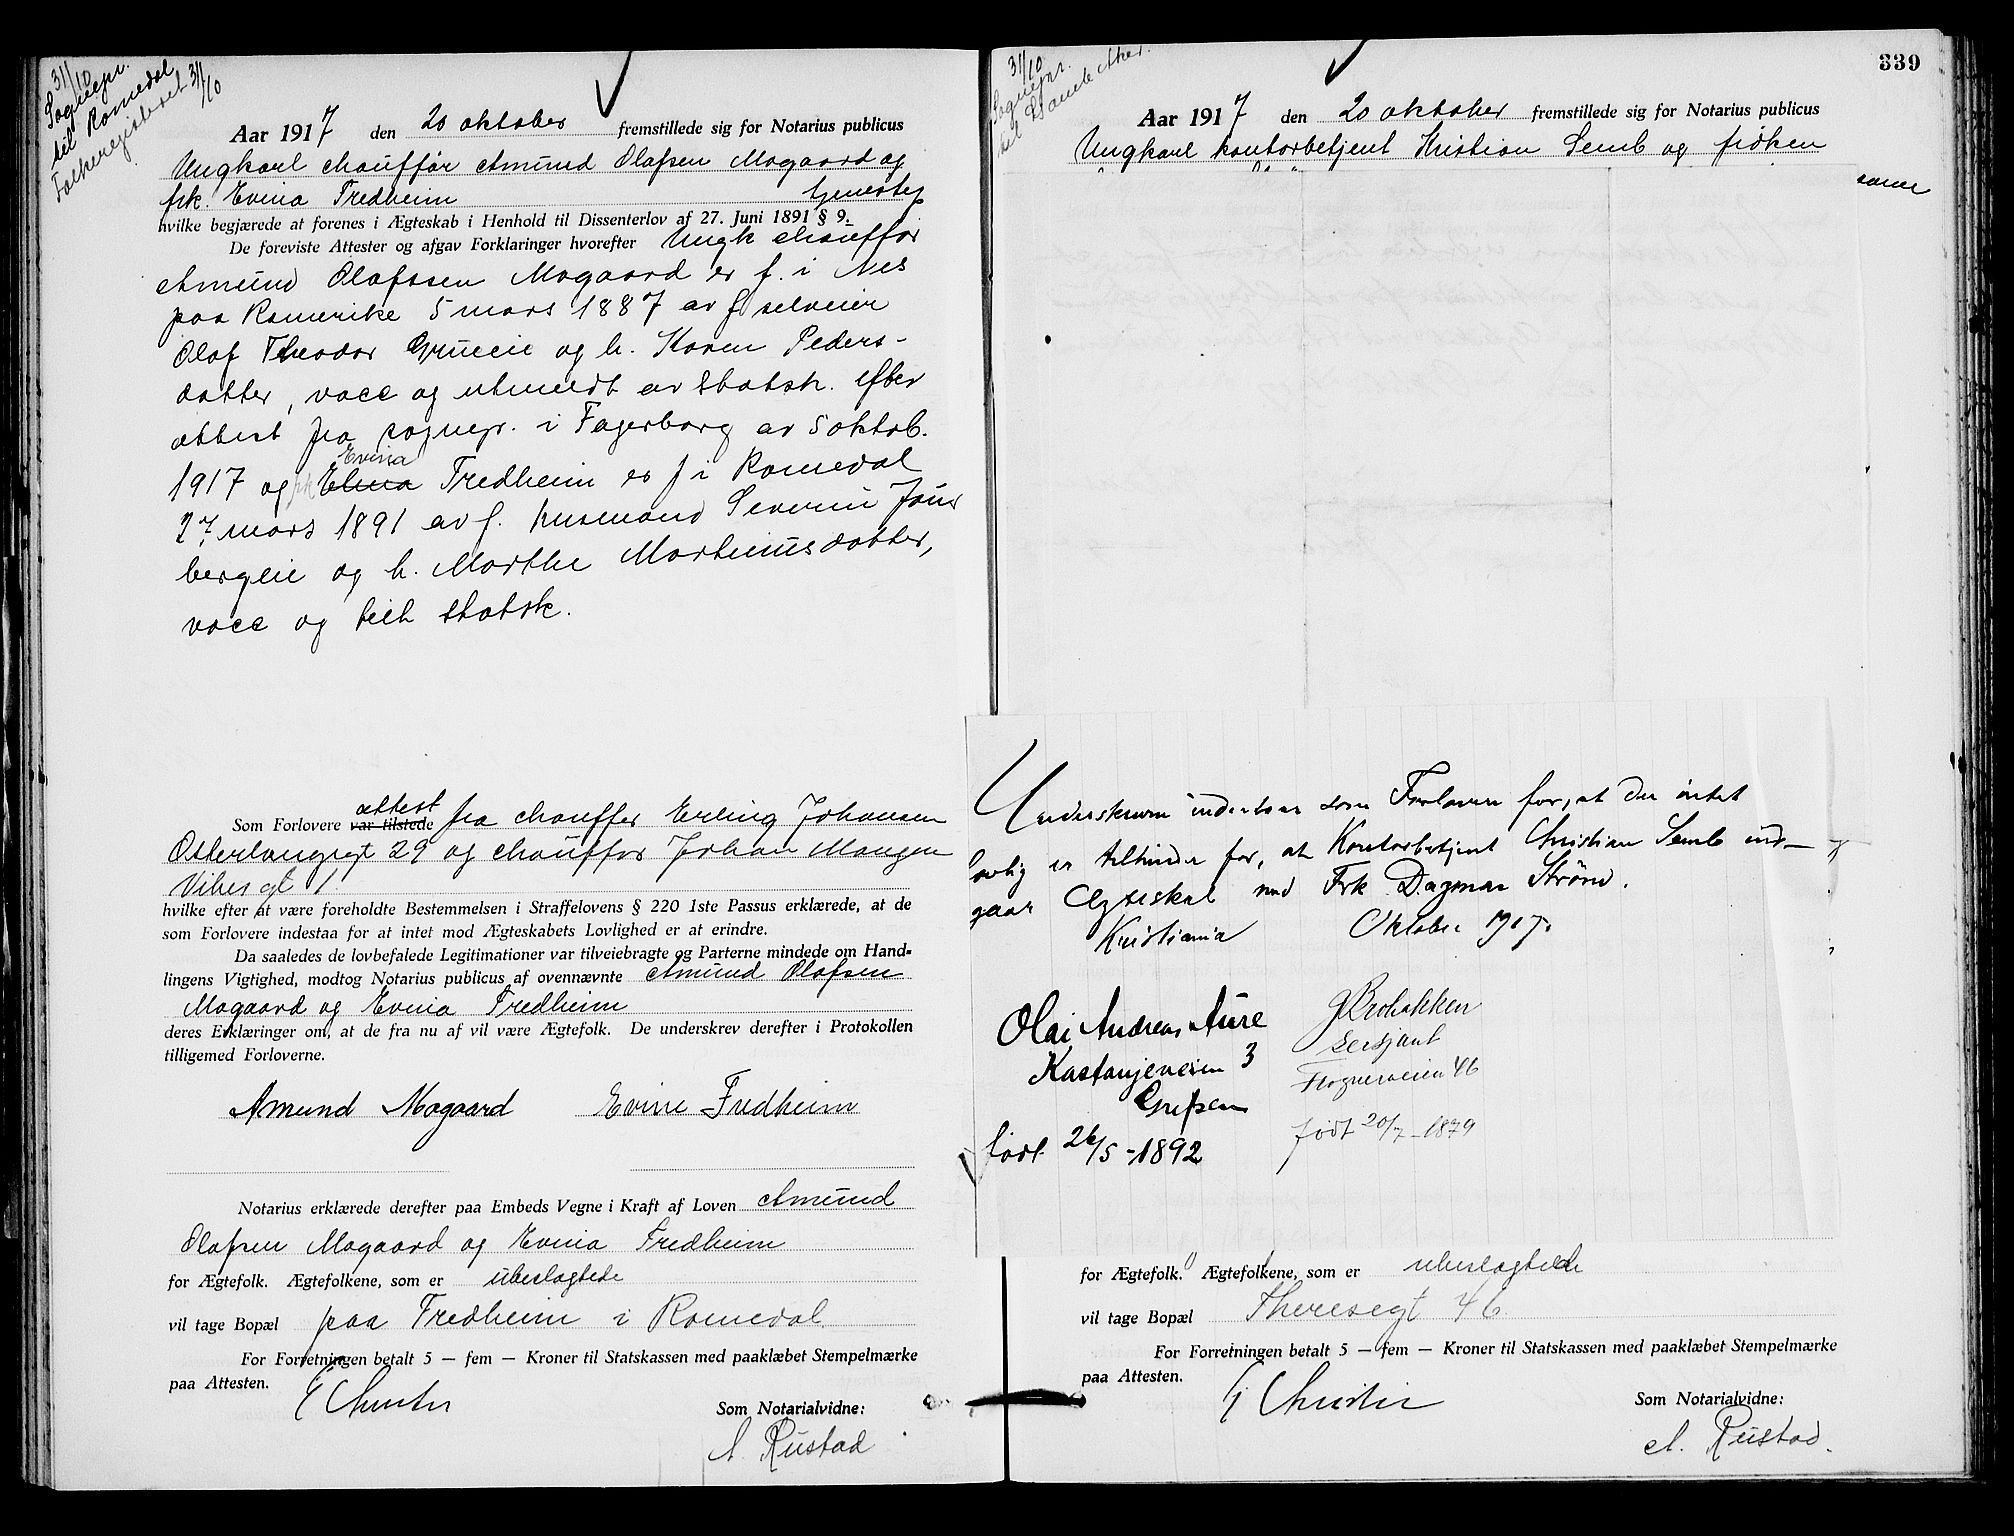 31/10
Sognepr.
til Romedal
Folkeregisteret 31/10
Aar 1917 den 20 oktober fremstillede sig for Notarius publicus
Ungkarl chauffør Amund Olafsen Mogaard og
frk. Evina Fredheim
hvilke begjærede at forenes i Ægteskab i Henhold til Dissenterlov af 27. Juni 1891 § 9.
De foreviste Attester og afgav Forklaringer hvorefter Ungk chauffør
Amund Olafssen Mogaard er f. i Nes
paa Romerike 5 mars 1887 av f selveier
Olaf Theodor Grueeie og h. Karen Peders-
datter, vacc og utmeldt av statsk. efter
attest fra sognepr. i Fagerborg av 5 oktob.
Evina
1917 og frk Elina Fredheim er f i Romedal
27 mars 1891 av f. husmand Severin
bergeie og h. Marthe Martinusdatter,
vacc og tilh statsk.
attest
Som Forlovere var tilstede fra chauffør Erling Johansen
Osterhausgt 29 og chauffør Johan Mangen
Vibes gt 1.
hvilke efter at være foreholdte Bestemmelsen i Straffelovens § 220 1ste Passus erklærede, at de
som Forlovere indestaa for at intet mod Ægteskabets Lovlighed er at erindre.
Da saaledes de lovbefalede Legitimationer var tilveiebragte og Parterne mindede om Hand-
lingens Vigtighed, modtog Notarius publicus af ovennævnte Amund Olafsen
Mogaard og Evina Fredheim
deres Erklæringer om, at de fra nu af vil være Ægtefolk. De underskrev derefter i Protokollen
tilligemed Forloverne.
Amund Mogaard Evine Fredheim
Notarius erklærede derefter paa Embeds Vegne i Kraft af Loven Amund
Olafsen Mogaard og Evina Fredheim
for Ægtefolk. Ægtefolkene, som er ubeslægtede
vil tage Bopæl paa Fredheim i Romedal
For Forretningen betalt 5 — fem — Kroner til Statskassen med paaklæbet Stempelmærke
paa Attesten.
Christie
Som Notarialvidne:
A. Rustad
339
31/10
Sognepr.
Aar 1917 den 20 oktober fremstillede sig for Notarius publicus
Ungkarl kontorbetjent Kristian Semb og frøken
Underskrevne indestaar som Forlovere for, at der intet
lovlig er tilhinder for, at Kontorbetjent Christian Semb ind-
gaar Ægteskab med Frk. Dagmar Strøm.
Kristiania Oktober 1917.
Olai Andreas Aure
Kastanjeveien 3
Grefsen
født 26/5-1892
Brobakken
Sersjant
Frognerveien 46
født 20/7-1879
for Ægtefolk. Ægtefolkene, som er ubeslægtede
vil tage Bopæl Theresegt 46.
For Forretningen betalt 5 — fem — Kroner til Statskassen med paaklæbet Stempelmærke
paa Attesten.
Christie
Som Notarialvidne:
A. Rustad.